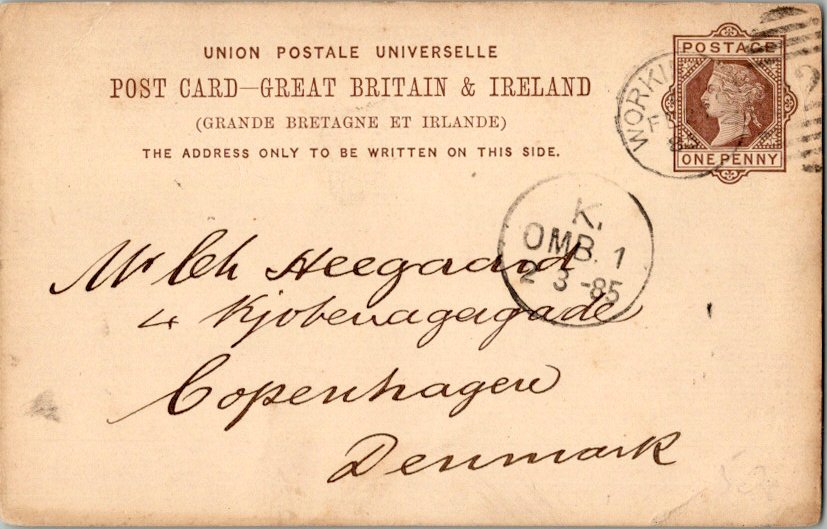 UNION POSTALE UNIVERSELLE
POST CARD—GREAT BRITAIN & IRELAND
(GRANDE BRETAGNE ET IRLANDE)
THE ADDRESS ONLY TO BE WRITTEN ON THIS SIDE.
POSTAGE
ONE PENNY
K.
OMB. 1
2 3 -85
Mr Ch Heegaard
4 Kjobenagergade
Copenhagen
Denmark